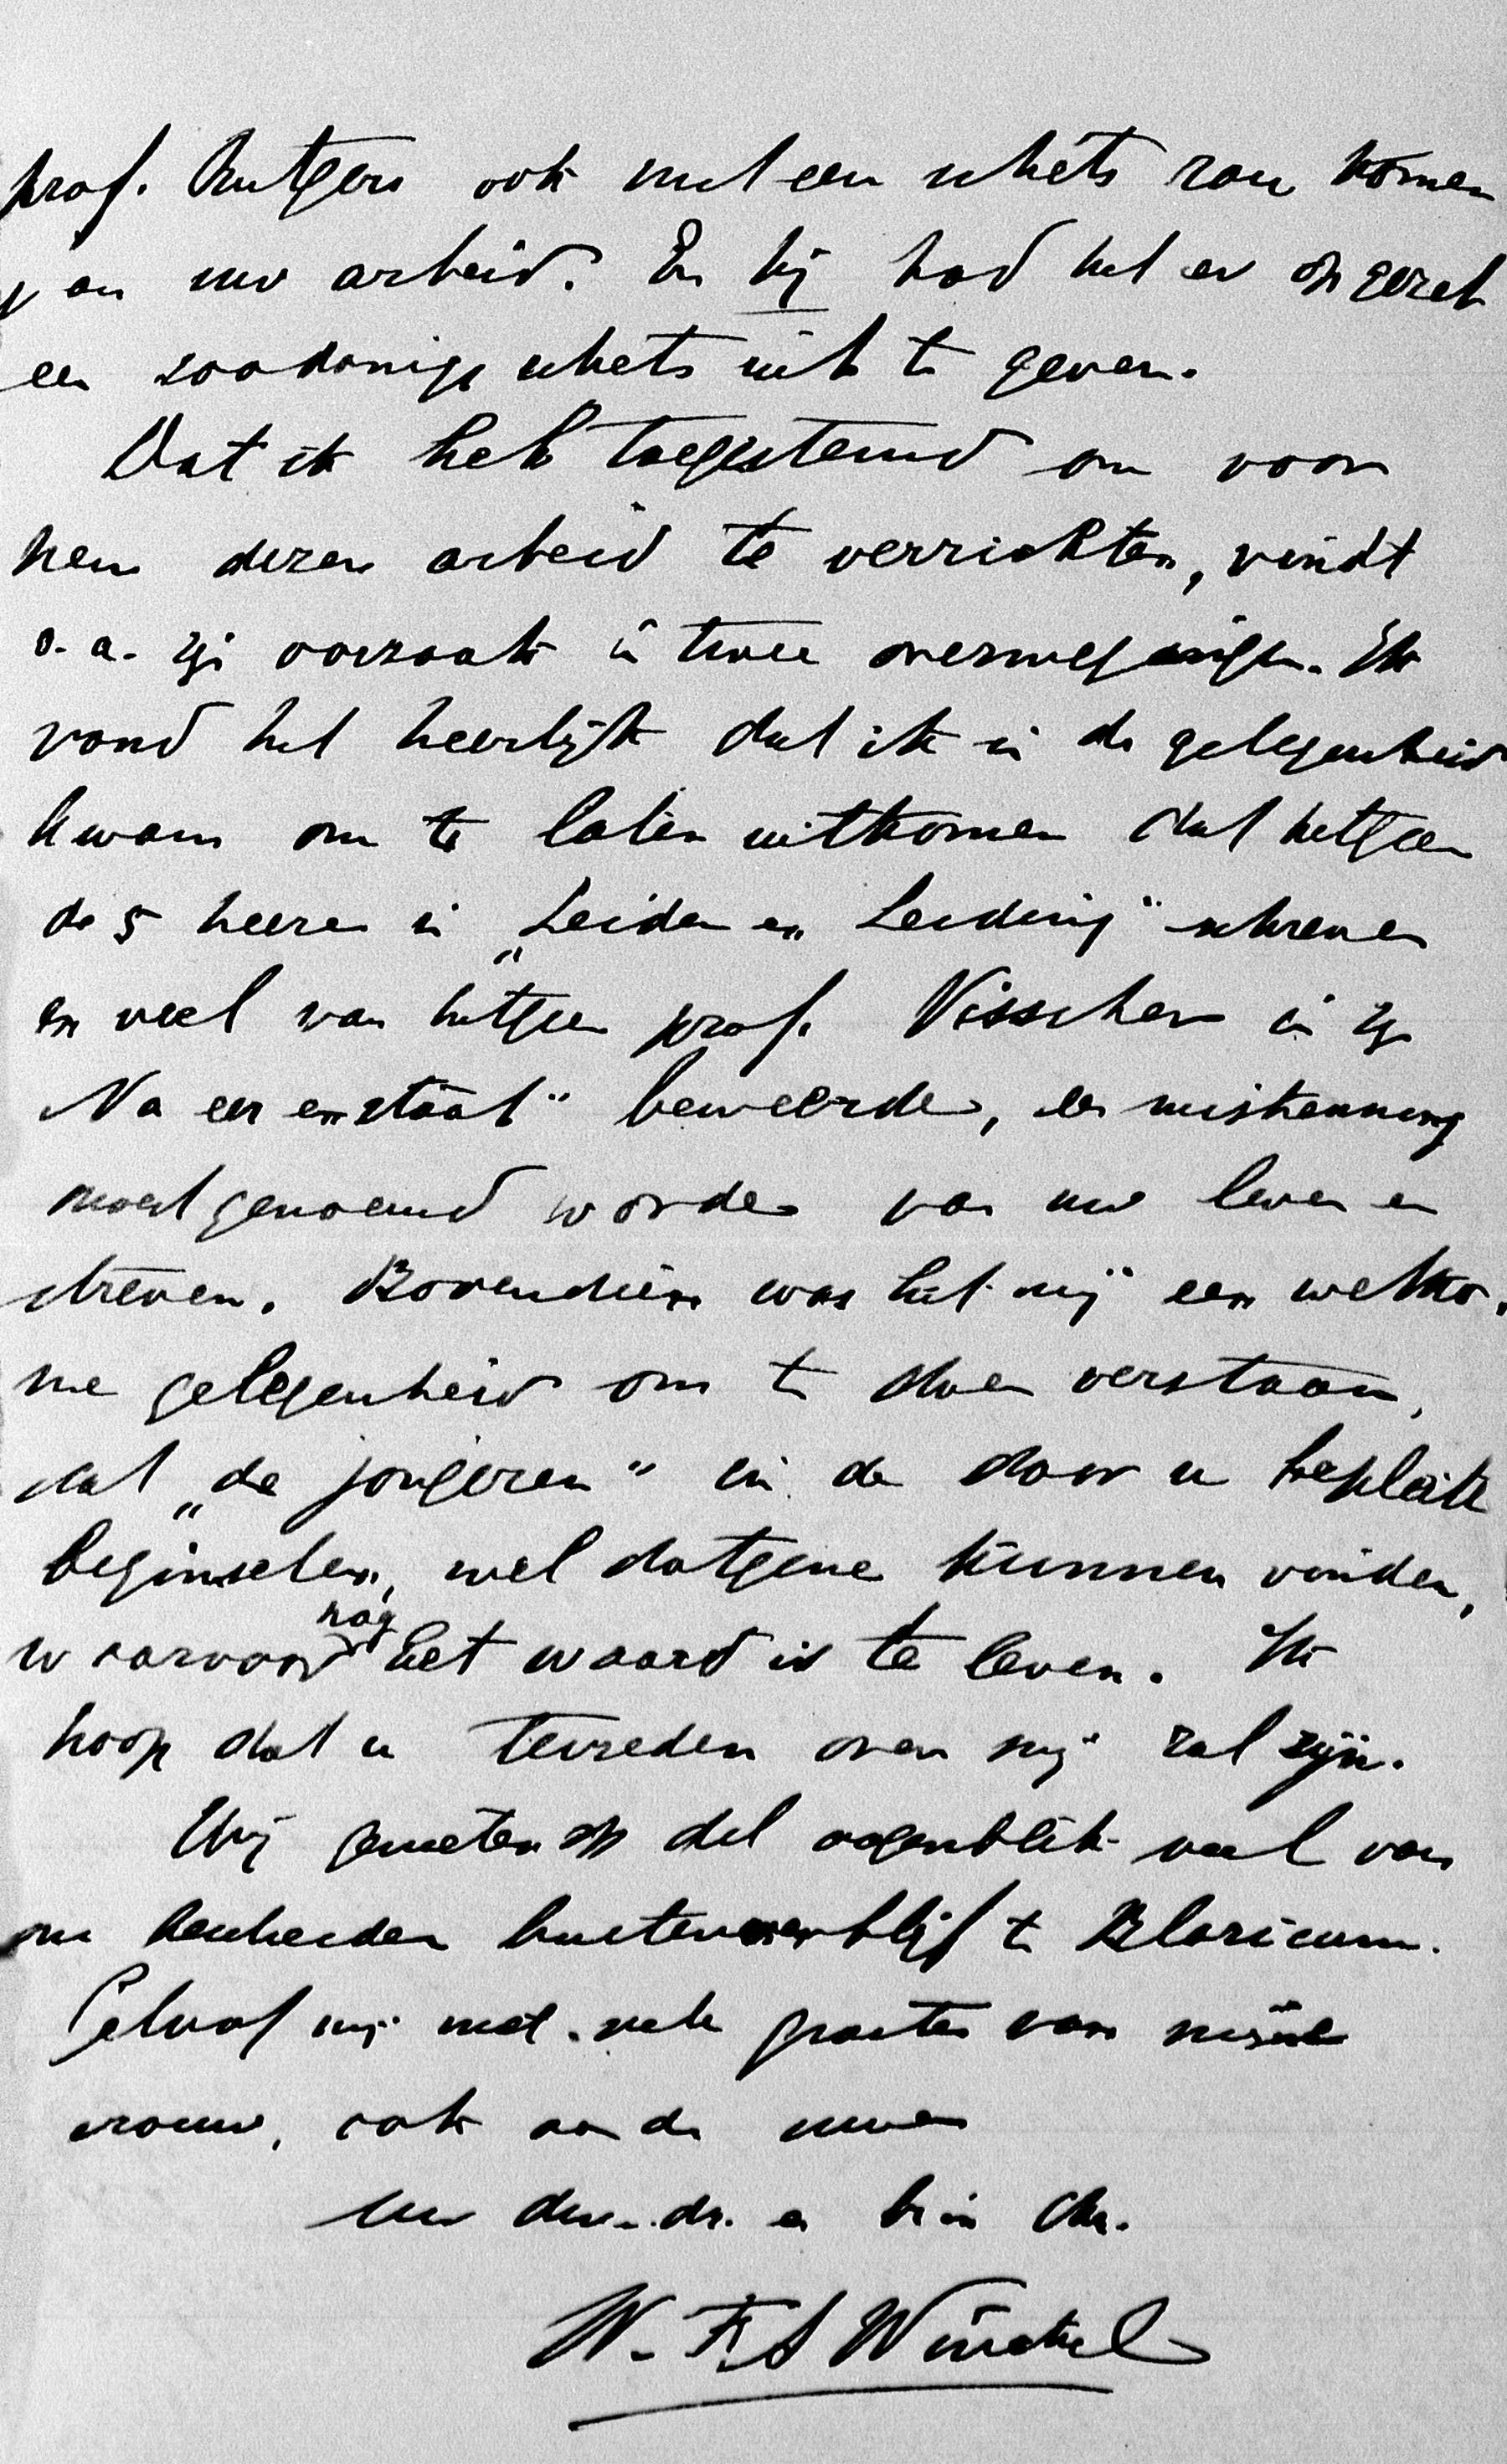 prof. Rutgers ook met een schets zou komen
van uw arbeid. En hij had het er op gezet
een zoodanige schets uit te geven.
Dat ik heb toegestemd om voor
hem dezen arbeid te verrichten, vindt
o.a. zijn oorzaak in twee overwegingen. Ik
vond het heerlijk dat ik in de gelegenheid
kwam om te laten uitkomen dat hetgeen
de 5 heeren in „Leider en Leiding" schreven
en veel van hetgeen prof. Visscher in zijn
Na een en staat" beweerde, een miskenning
moet genoemd worden van uw leven en
streven. Bovendien was het mij een welko-
me gelegenheid om te doen verstaan,
dat „de jongeren" in de door u bepleitte
beginselen, wel datgene kunnen vinden,
waarvoor nog het waard is te leven. Ik
hoop dat u tevreden over mij zal zijn.
Wij genieten op dit oogenblik veel van
ons bescheiden buitenverblijf te Blaricum.
Geloof mij met vele groeten van mijne
vrouw, ook aan de uwen
Uw dw. dr. en br in Chr.
W. F. A Winckel